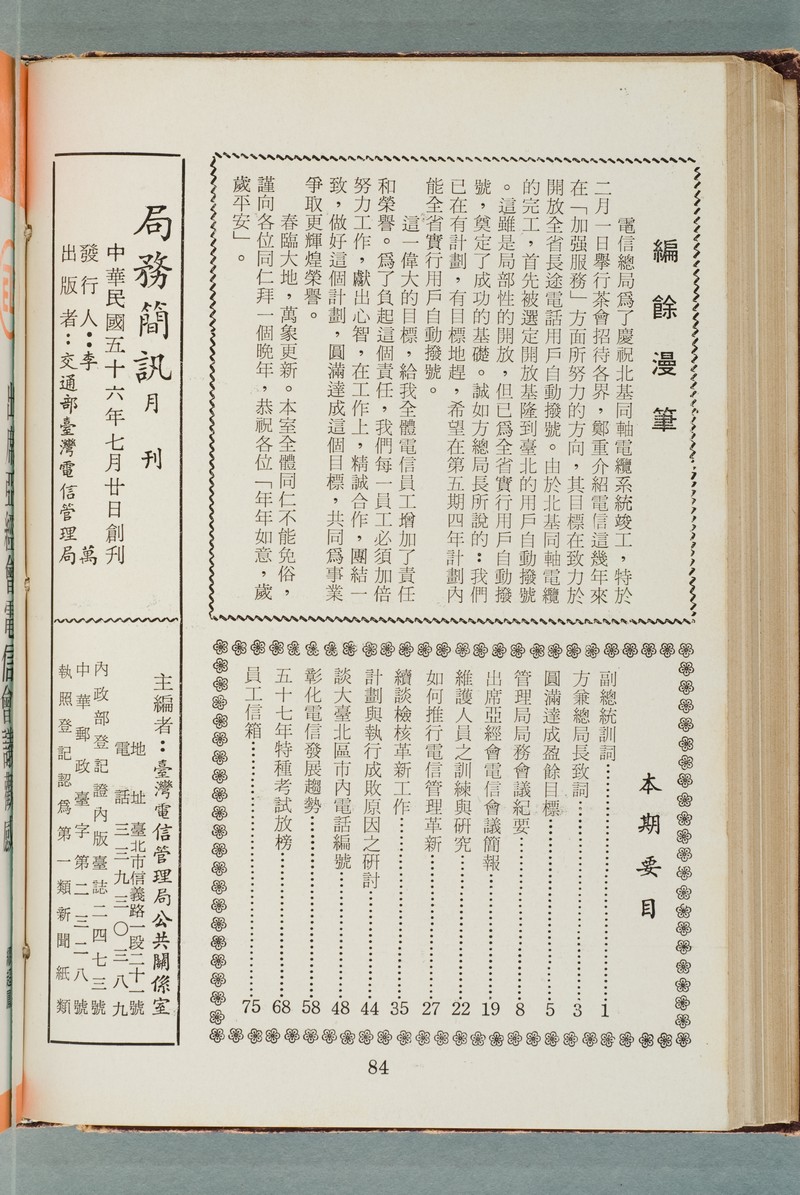 編餘漫筆
電信總局爲了慶祝北基同軸電纜系統竣工，特於
二月一日舉行茶會招待各界，鄭重介紹電信這幾年來
在「加强服務」方面所努力的方向，其目標在致力於
開放全省長途電話用戶自動撥號。由於北基同軸電纜
的完工，首先被選定開放基隆到臺北的用戶自動撥號
。這雖是局部性的開放，但已爲全省實行用戶自動撥
號，奠定了成功的基礎。誠如方總局長所說的：我們
已在有計劃，有目標地趕，希望在第五期四年計劃內
能全省實行用戶自動撥號。
這一偉大的目標，給我全體電信員工增加了責任
和榮譽。爲了負起這個責任，我們每一員工必須加倍
努力工作，獻出心智，在工作上，精誠合作，團結一
致，做好這個計劃，圓滿達成這個目標，共同爲事業
爭取更輝煌榮譽。
春臨大地，萬象更新。本室全體同仁不能免俗，
謹向各位同仁拜一個晚年，恭祝各位「年年如意，歲
歲平安」。
本期要目
副總統訓詞……1
方兼總局長致詞……3
圓滿達成盈餘目標……5
管理局局務會議紀要……8
出席亞經會電信會議簡報……19
維護人員之訓練與研究……22
如何推行電信管理革新……27
續談檢核革新工作……35
計劃與執行成敗原因之研討……44
談大臺北區市內電話編號……48
彰化電信發展趨勢……58
五十七年特種考試放榜……68
員工信箱……75
局務簡訊月刊
中華民國五十六年七月廿日創刊
發行人：李萬
出版者：交通部臺灣電信管理局
主編者：臺灣電信管理局公共關係室
地址 臺北市信義路一段二十一號
電話 三三九三〇三八九
內政部登記證內版臺誌二四七三號
中華郵政臺字第二三二八號
執照登記認爲第一類新聞紙類
84